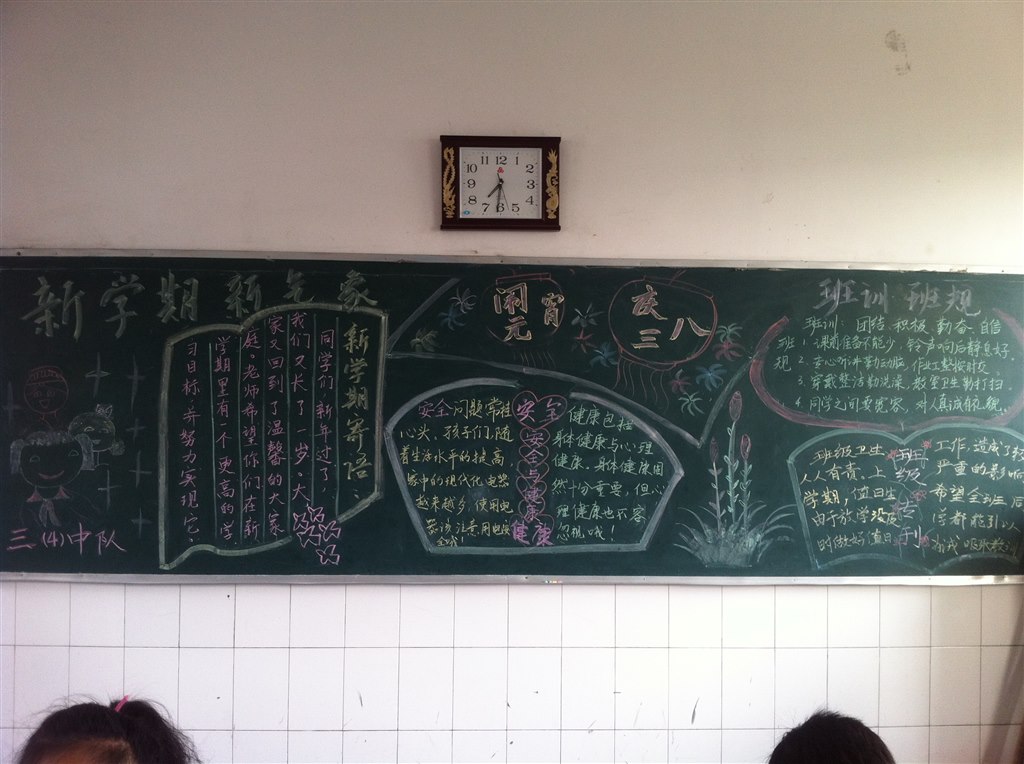 11 12 1
10 2
9 3
8 4
7 6 5
新学期 新气象
新学期寄语:
同学们,新年过了,
我们又长了一岁。大
家又回到了温馨的大家
庭。老师希望你们在新
学期里有一个更高的学
习目标,并努力实现它。
三(4)中队
闹元宵
庆三八
安全问题常挂
心头,孩子们,随
着生活水平的提高,
家中的现代化电器
越来越多,使用电
器该注意用电
安全
安全与健康
健康
健康包括
身体健康与心理
健康,身体健康固
然十分重要,但心
理健康也不容
忽视哦!
班训 班规
班训:团结 积极 勤奋 自信
班规
1.课前准备不能少,铃声响后静息好。
2.安心听讲勤动脑,作业工整按时交。
3.穿戴整洁勤洗澡,教室卫生勤打扫。
4.同学之间要宽容,对人真诚有礼貌。
班级
班级卫生
人人有责。上
学期,值日生
由于放学没及
时做好值日
工作,造成了较
严重的影响
希望全班同
学都能引以
为戒